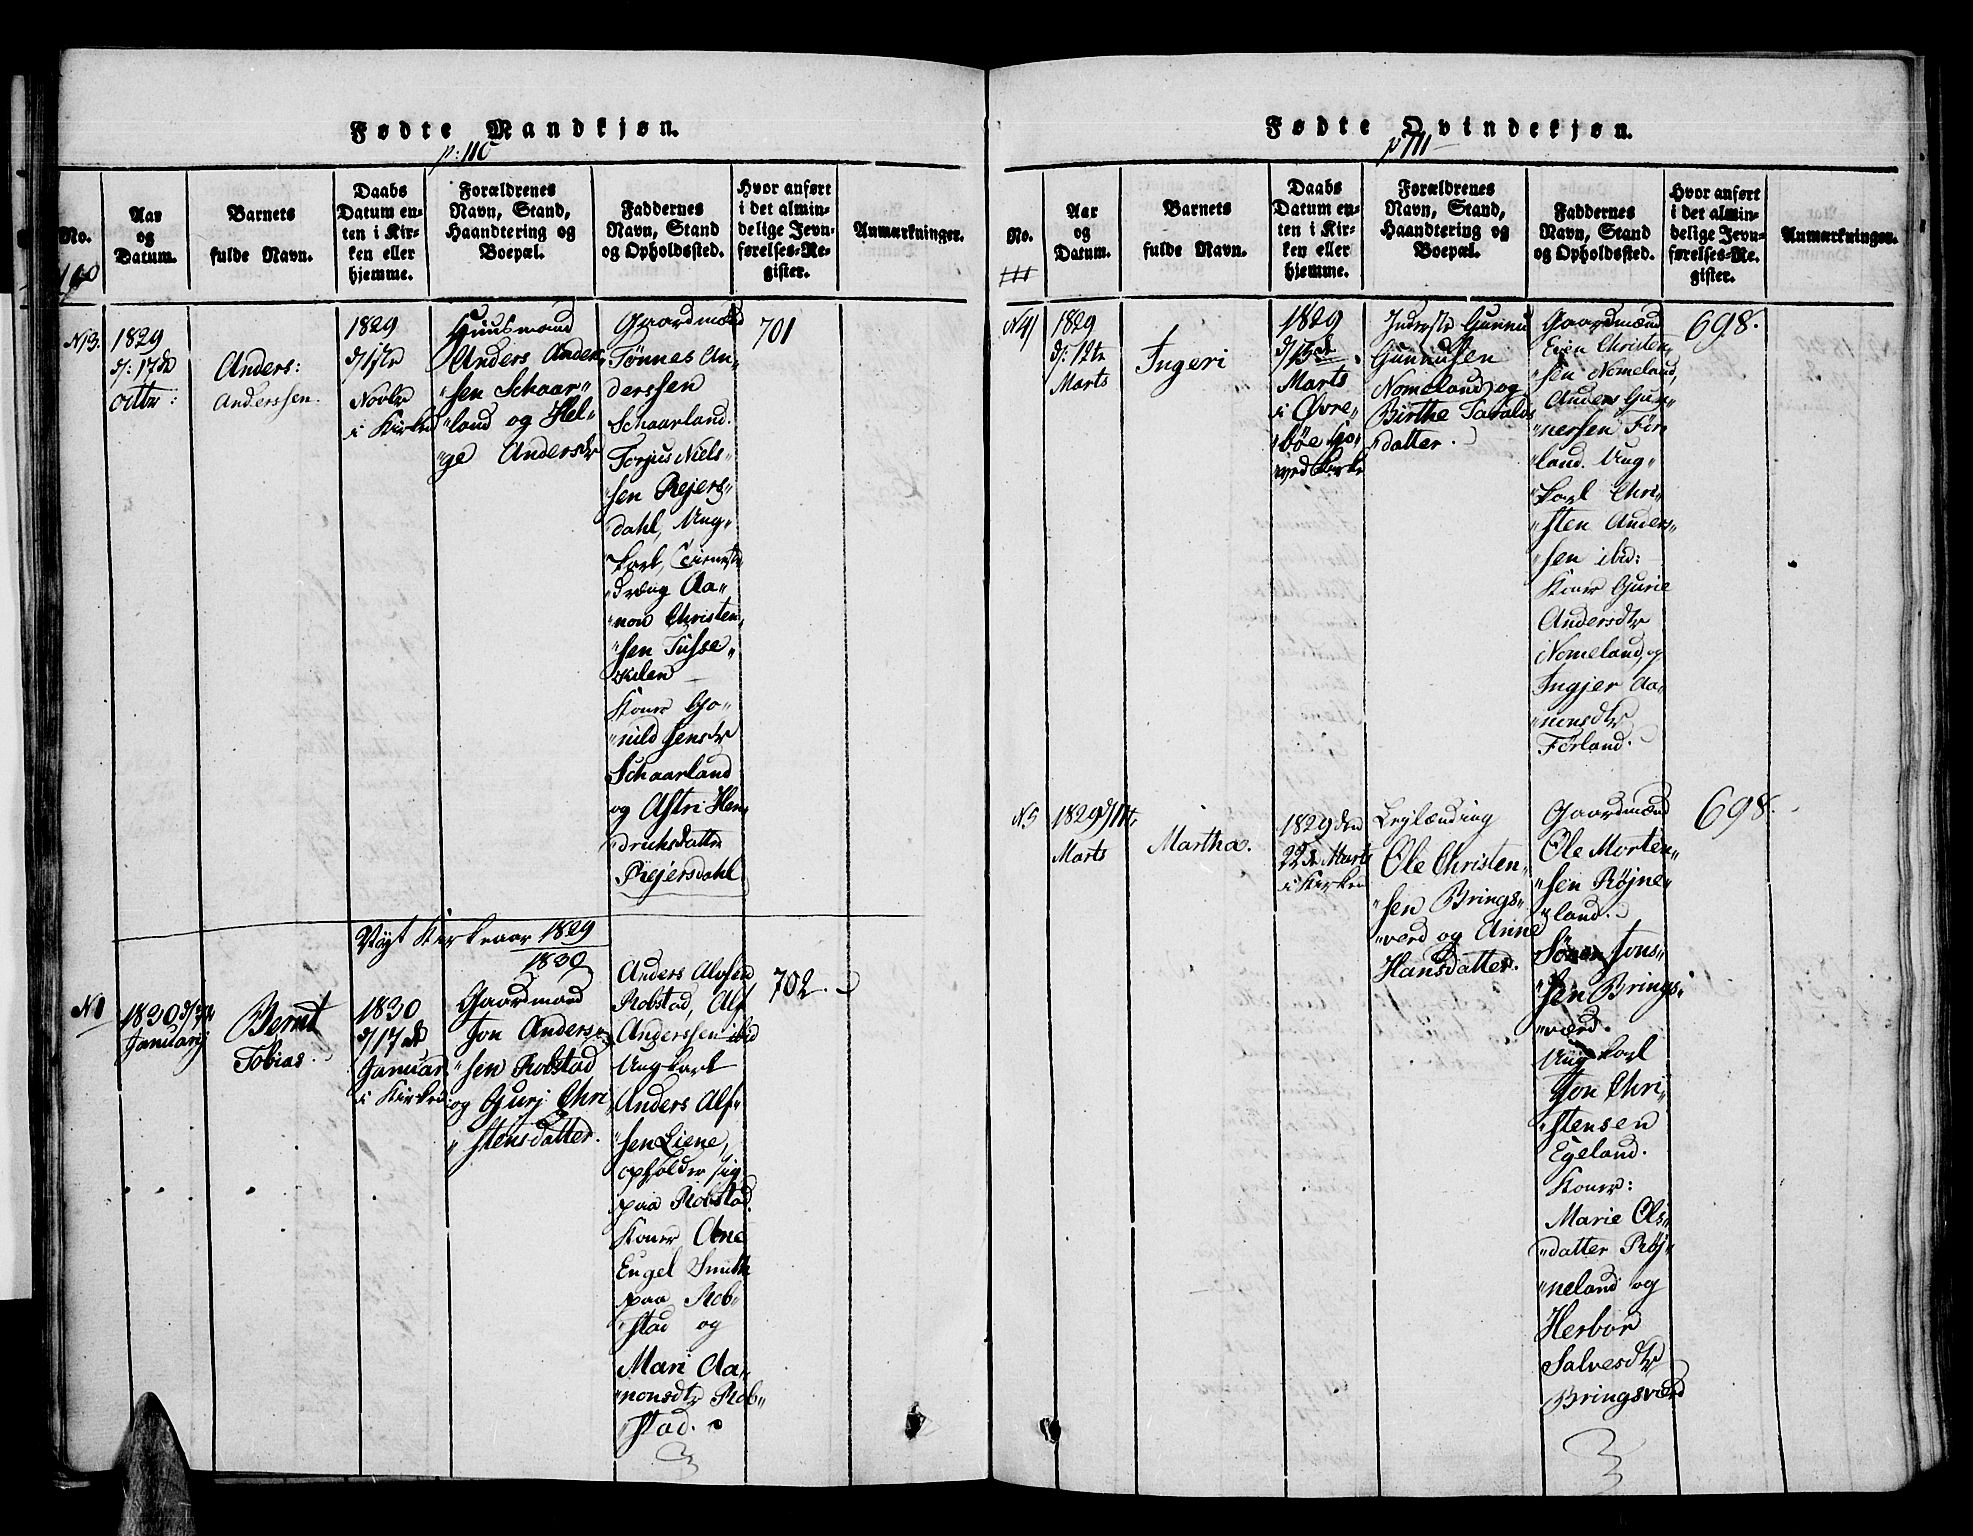 Fødte Mandkjøn.
p: 110
No.
Aar
og
Datum.
Barnets
fulde Navn.
Daabs
Datum en-
ten i Kir-
ken eller
hjemme.
Forældrenes
Navn, Stand,
Haandtering og
Boepæl.
Faddernes
Navn, Stand
og Opholdssted.
Hvor anført
i det almin-
delige Jevn-
førelses-Re-
gister.
Anmærkninger.
N 3.
1829
d: 17de
Octbr:
Anders:
Anderssen.
1829
d/1ste
Novbr
i Kirken
Huusmand
Anders Ander„
„sen Schaar„
„land og Hel„
„ge Andersdr
Gaardmænd
Tønnes An„
derssen
Schaarland.
Torjus Niels„
„sen Rejers„
„dahl, Ung„
„karl, Tieneste
„dræng Aa„
„non Christen„
„sen Tusse„
„kilen
Koner Go„
„nild Jensdr
Schaarland
og Astri Hen„
„drichsdatter
Rejersdahl
701
Vogt Kirkeaar 1829
1830
N 1
1830
January
Bernt
Tobias.
1830
d/17de
Januar
i Kirken
Gaardmand
Jon Anders„
„sen Robstad
og Gurj Chri„
„stensdatter.
Anders Alfsen
Robstad, Alf
Anderssen ibid
Ungkarl
Anders Alf„
„sen Liene,
opholder sig
paa Robstad.
Koner Ane
Engel Smith
paa Rob„
„stad og
Mari Aa„
„nonsdtr Rob„
„stad.
702.
Fødte Qvindekjøn.
p 111
No.
111
Aar
og
Datum.
Barnets
fulde Navn.
Daabs
Datum en-
ten i Kir-
ken eller
hjemme.
Forældrenes
Navn, Stand,
Haandtering og
Boepæl.
Faddernes
Navn, Stand
og Opholdssted.
Hvor anført
i det almin-
delige Jevn-
førelses-Re-
gister.
Anmærkninger.
N 4)
1829
d: 12te
Marts
Ingeri
1829
d/15de
Marts
i Øvre„
„bøe Ho„
„ved Kirke
Inderste Gunnu
Gunnusen
Nomeland og
Birthe Taralds
„datter.
Gaardmænd
Even Christen„
„sen Nomeland,
Anders Gun„
„nersen Før„
„land. Ung„
„karl Chri„
„sten Anders„
„sen ibid:
Koner Gurie
Andersdtr
Nomeland, og
Ingjer Aa„
„nonsdtr
Førland.
698.
N 5
1829
Marts
Martha.
1829 den
22de Marts
i Kirken
Lejlænding
Ole Christen„
„sen Brings„
„værd og Anne
Hansdatter.
Gaardmænd
Ole Morten„
„sen Røjne„
„land.
Søren Jons„
„sen Brings„
„værd.
Ungkarl
Jon Chri„
„stensen
Egeland.
Koner:
Marie Ols„
„datter Røj„
„neland og
Herbor
Salvesdtr
Bringsværd
698.